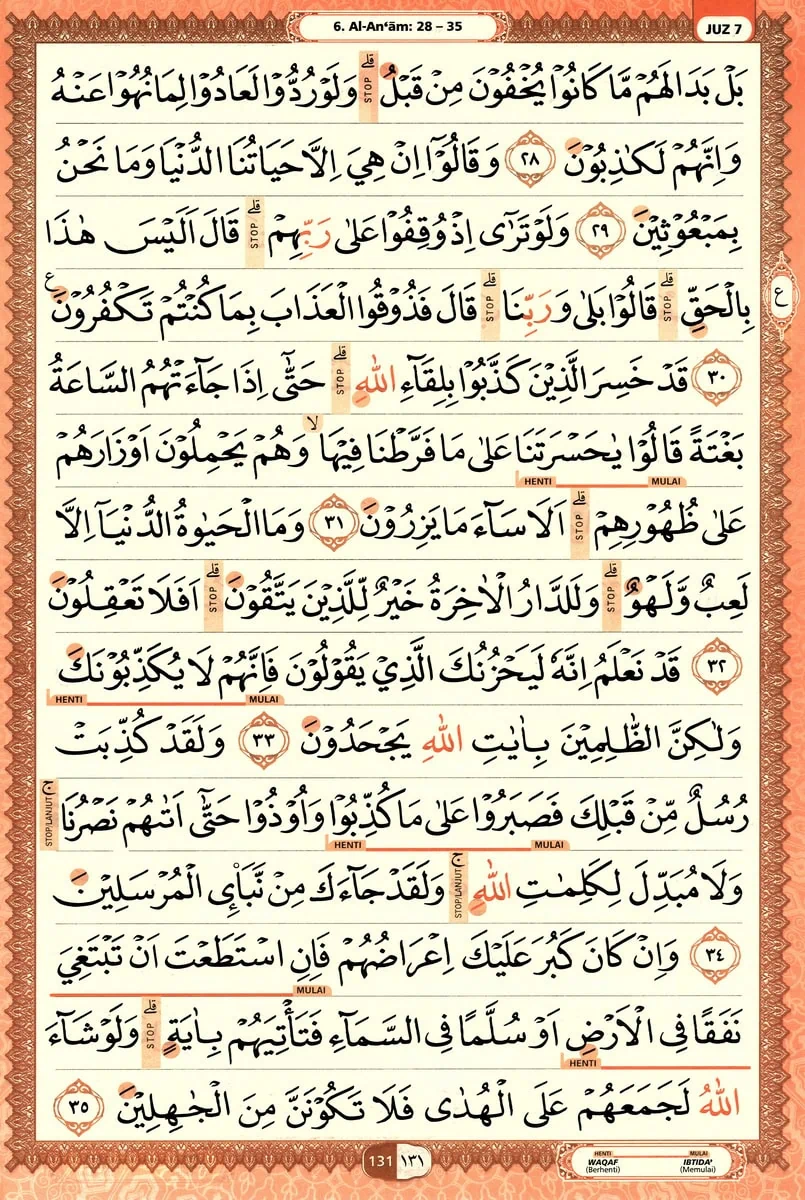 6. Al-An‘ām: 28 – 35
JUZ 7
بَلْ بَدَا لَهُمْ مَّا كَانُوْا يُخْفُوْنَ مِنْ قَبْلُ ۗ STOP وَلَوْ رُدُّوْا لَعَادُوْا لِمَا نُهُوْا عَنْهُ
وَاِنَّهُمْ لَكٰذِبُوْنَ ٢٨ وَقَالُوْٓا اِنْ هِيَ اِلَّا حَيَاتُنَا الدُّنْيَا وَمَا نَحْنُ
بِمَبْعُوْثِيْنَ ٢٩ وَلَوْ تَرٰٓى اِذْ وُقِفُوْا عَلٰى رَبِّهِمْ ۗ STOP قَالَ اَلَيْسَ هٰذَا
بِالْحَقِّ ۗ STOP قَالُوْا بَلٰى وَرَبِّنَا ۗ STOP قَالَ فَذُوْقُوا الْعَذَابَ بِمَا كُنْتُمْ تَكْفُرُوْنَ ع
ع
٣٠ قَدْ خَسِرَ الَّذِيْنَ كَذَّبُوْا بِلِقَاۤءِ اللّٰهِ ۗ STOP حَتّٰٓى اِذَا جَاۤءَتْهُمُ السَّاعَةُ
بَغْتَةً قَالُوْا يٰحَسْرَتَنَا عَلٰى مَا فَرَّطْنَا فِيْهَا ۙ وَهُمْ يَحْمِلُوْنَ اَوْزَارَهُمْ
MULAI HENTI
عَلٰى ظُهُوْرِهِمْ ۗ STOP اَلَا سَاۤءَ مَا يَزِرُوْنَ ٣١ وَمَا الْحَيٰوةُ الدُّنْيَآ اِلَّا
لَعِبٌ وَّلَهْوٌ ۗ STOP وَلَلدَّارُ الْاٰخِرَةُ خَيْرٌ لِّلَّذِيْنَ يَتَّقُوْنَ ۗ STOP اَفَلَا تَعْقِلُوْنَ
٣٢ قَدْ نَعْلَمُ اِنَّهٗ لَيَحْزُنُكَ الَّذِيْ يَقُوْلُوْنَ فَاِنَّهُمْ لَا يُكَذِّبُوْنَكَ
MULAI HENTI
وَلٰكِنَّ الظّٰلِمِيْنَ بِاٰيٰتِ اللّٰهِ يَجْحَدُوْنَ ٣٣ وَلَقَدْ كُذِّبَتْ
رُسُلٌ مِّنْ قَبْلِكَ فَصَبَرُوْا عَلٰى مَا كُذِّبُوْا وَاُوْذُوْا حَتّٰٓى اَتٰىهُمْ نَصْرُنَا ۚ STOP/LANJUT
MULAI HENTI
وَلَا مُبَدِّلَ لِكَلِمٰتِ اللّٰهِ ۚ STOP/LANJUT وَلَقَدْ جَاۤءَكَ مِنْ نَّبَإِى الْمُرْسَلِيْنَ
٣٤ وَاِنْ كَانَ كَبُرَ عَلَيْكَ اِعْرَاضُهُمْ فَاِنِ اسْتَطَعْتَ اَنْ تَبْتَغِيَ
MULAI
نَفَقًا فِى الْاَرْضِ اَوْ سُلَّمًا فِى السَّمَاۤءِ فَتَأْتِيَهُمْ بِاٰيَةٍ ۗ STOP وَلَوْ شَاۤءَ
HENTI
اللّٰهُ لَجَمَعَهُمْ عَلَى الْهُدٰى فَلَا تَكُوْنَنَّ مِنَ الْجٰهِلِيْنَ ٣٥
131 ١٣١
HENTI MULAI
WAQAF IBTIDA'
(Berhenti) (Memulai)